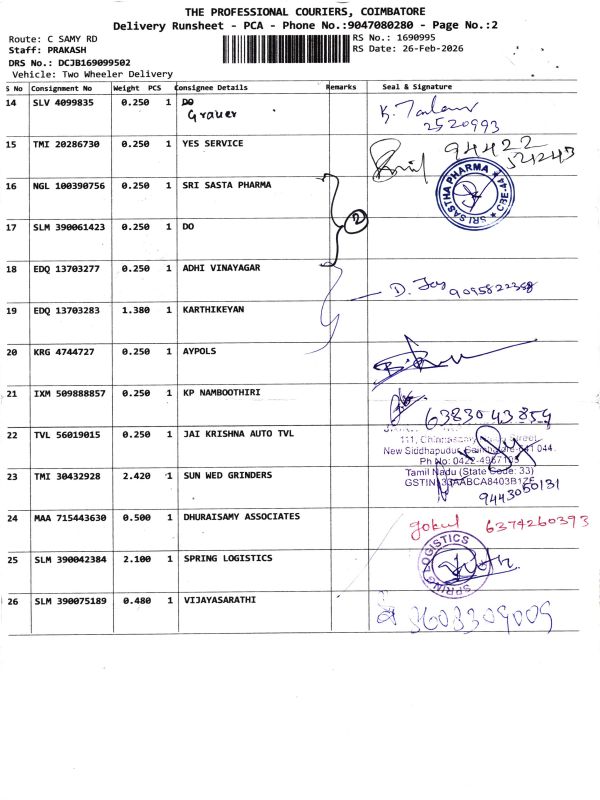 THE PROFESSIONAL COURIERS, COIMBATORE
Delivery Runsheet - PCA - Phone No.:9047080280 - Page No.:2
Route: C SAMY RD
Staff: PRAKASH
DRS No.: DCJB169099502
Vehicle: Two Wheeler Delivery
RS No.: 1690995
RS Date: 26-Feb-2026
S No Consignment No Weight PCS Consignee Details Remarks Seal & Signature
14 SLV 4099835 0.250 1 DO
2520993
15 TMI 20286730 0.250 1 YES SERVICE
94422
16 NGL 100390756 0.250 1 SRI SASTA PHARMA
SRI SASTHA PHARMA ★ CBE-44 ★
17 SLM 390061423 0.250 1 DO
2
18 EDQ 13703277 0.250 1 ADHI VINAYAGAR
D. Jay 9095822358
19 EDQ 13703283 1.380 1 KARTHIKEYAN
20 KRG 4744727 0.250 1 AYPOLS
21 IXM 509888857 0.250 1 KP NAMBOOTHIRI
6383043859
22 TVL 56019015 0.250 1 JAI KRISHNA AUTO TVL
111, Street,
New Siddhapudur, Coimbatore-641 044.
Ph No: 0422-
Tamil Nadu (State Code: 33)
GSTIN
23 TMI 30432928 2.420 1 SUN WED GRINDERS
9443060131
24 MAA 715443630 0.500 1 DHURAISAMY ASSOCIATES
gokul 6374260393
25 SLM 390042384 2.100 1 SPRING LOGISTICS
SPRING LOGISTICS
26 SLM 390075189 0.480 1 VIJAYASARATHI
3608309009